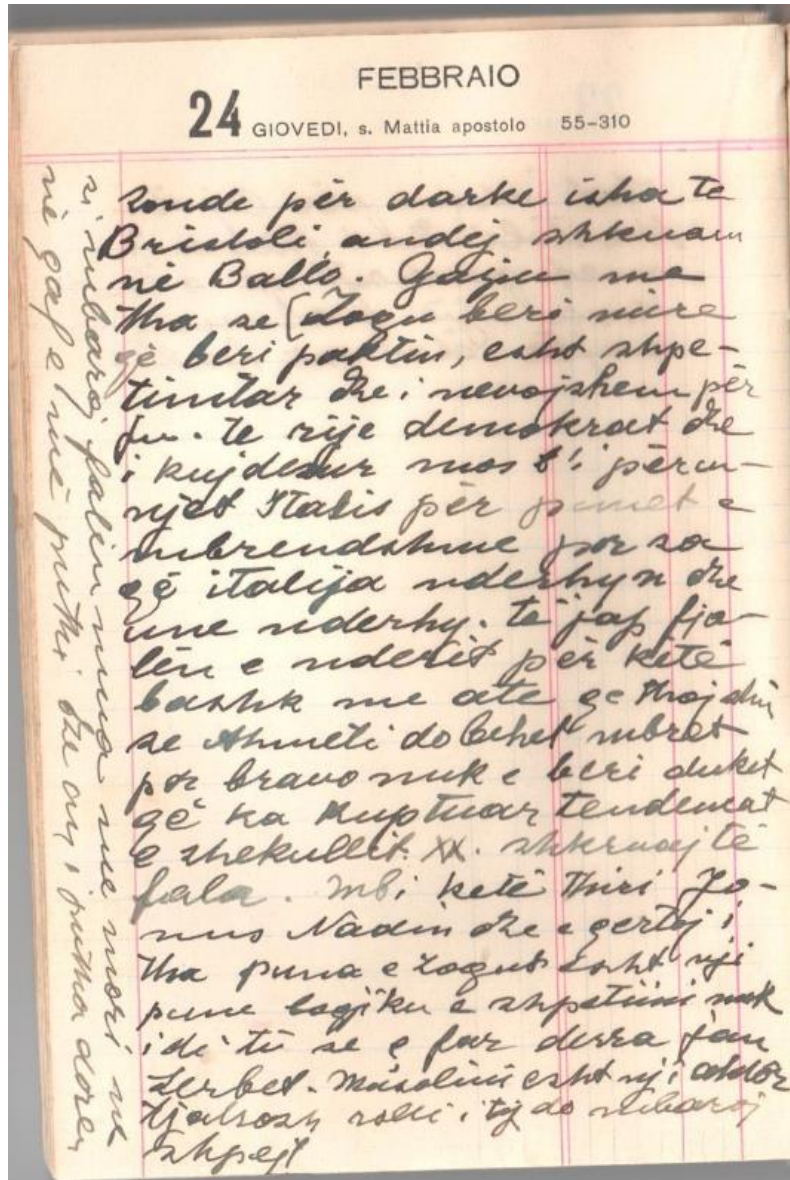 FEBBRAIO
24 GIOVEDI, s. Mattia apostolo 55-310
Sonde për darke isha te
Bristoli, andej shkuam
në Ballo. me
tha se (Zogu beri mire
që beri paktin, esht shpe-
timtar dhe i nevojshem për
ju. te rije demokrat dhe
i kujdesur mos t'i përzi-
njet Italis për punet e
mbrendshme por sa
që italija nderhyn dhe
une nderhy. te jap fja-
lën e nderit për ketë
bashk me ate qe thoj din
se Ahmeti do behet mbret
por bravo nuk e beri duket
që ka kuptuar tendencat
e shekullit XX. shkruaj të
fala. Mbi ketë thiri Jo-
nus Nadin dhe e qertoj i
tha puna e Zogut esht nji
pune logjiku e shpetimi nuk
i di ti se ç far derra jan
Serbet. Musolini esht nji
roli i tij do mbaroj
shpejt
si mbaroj fialin mua me mori në
në qaf e më puthi dhe ay i putha doren